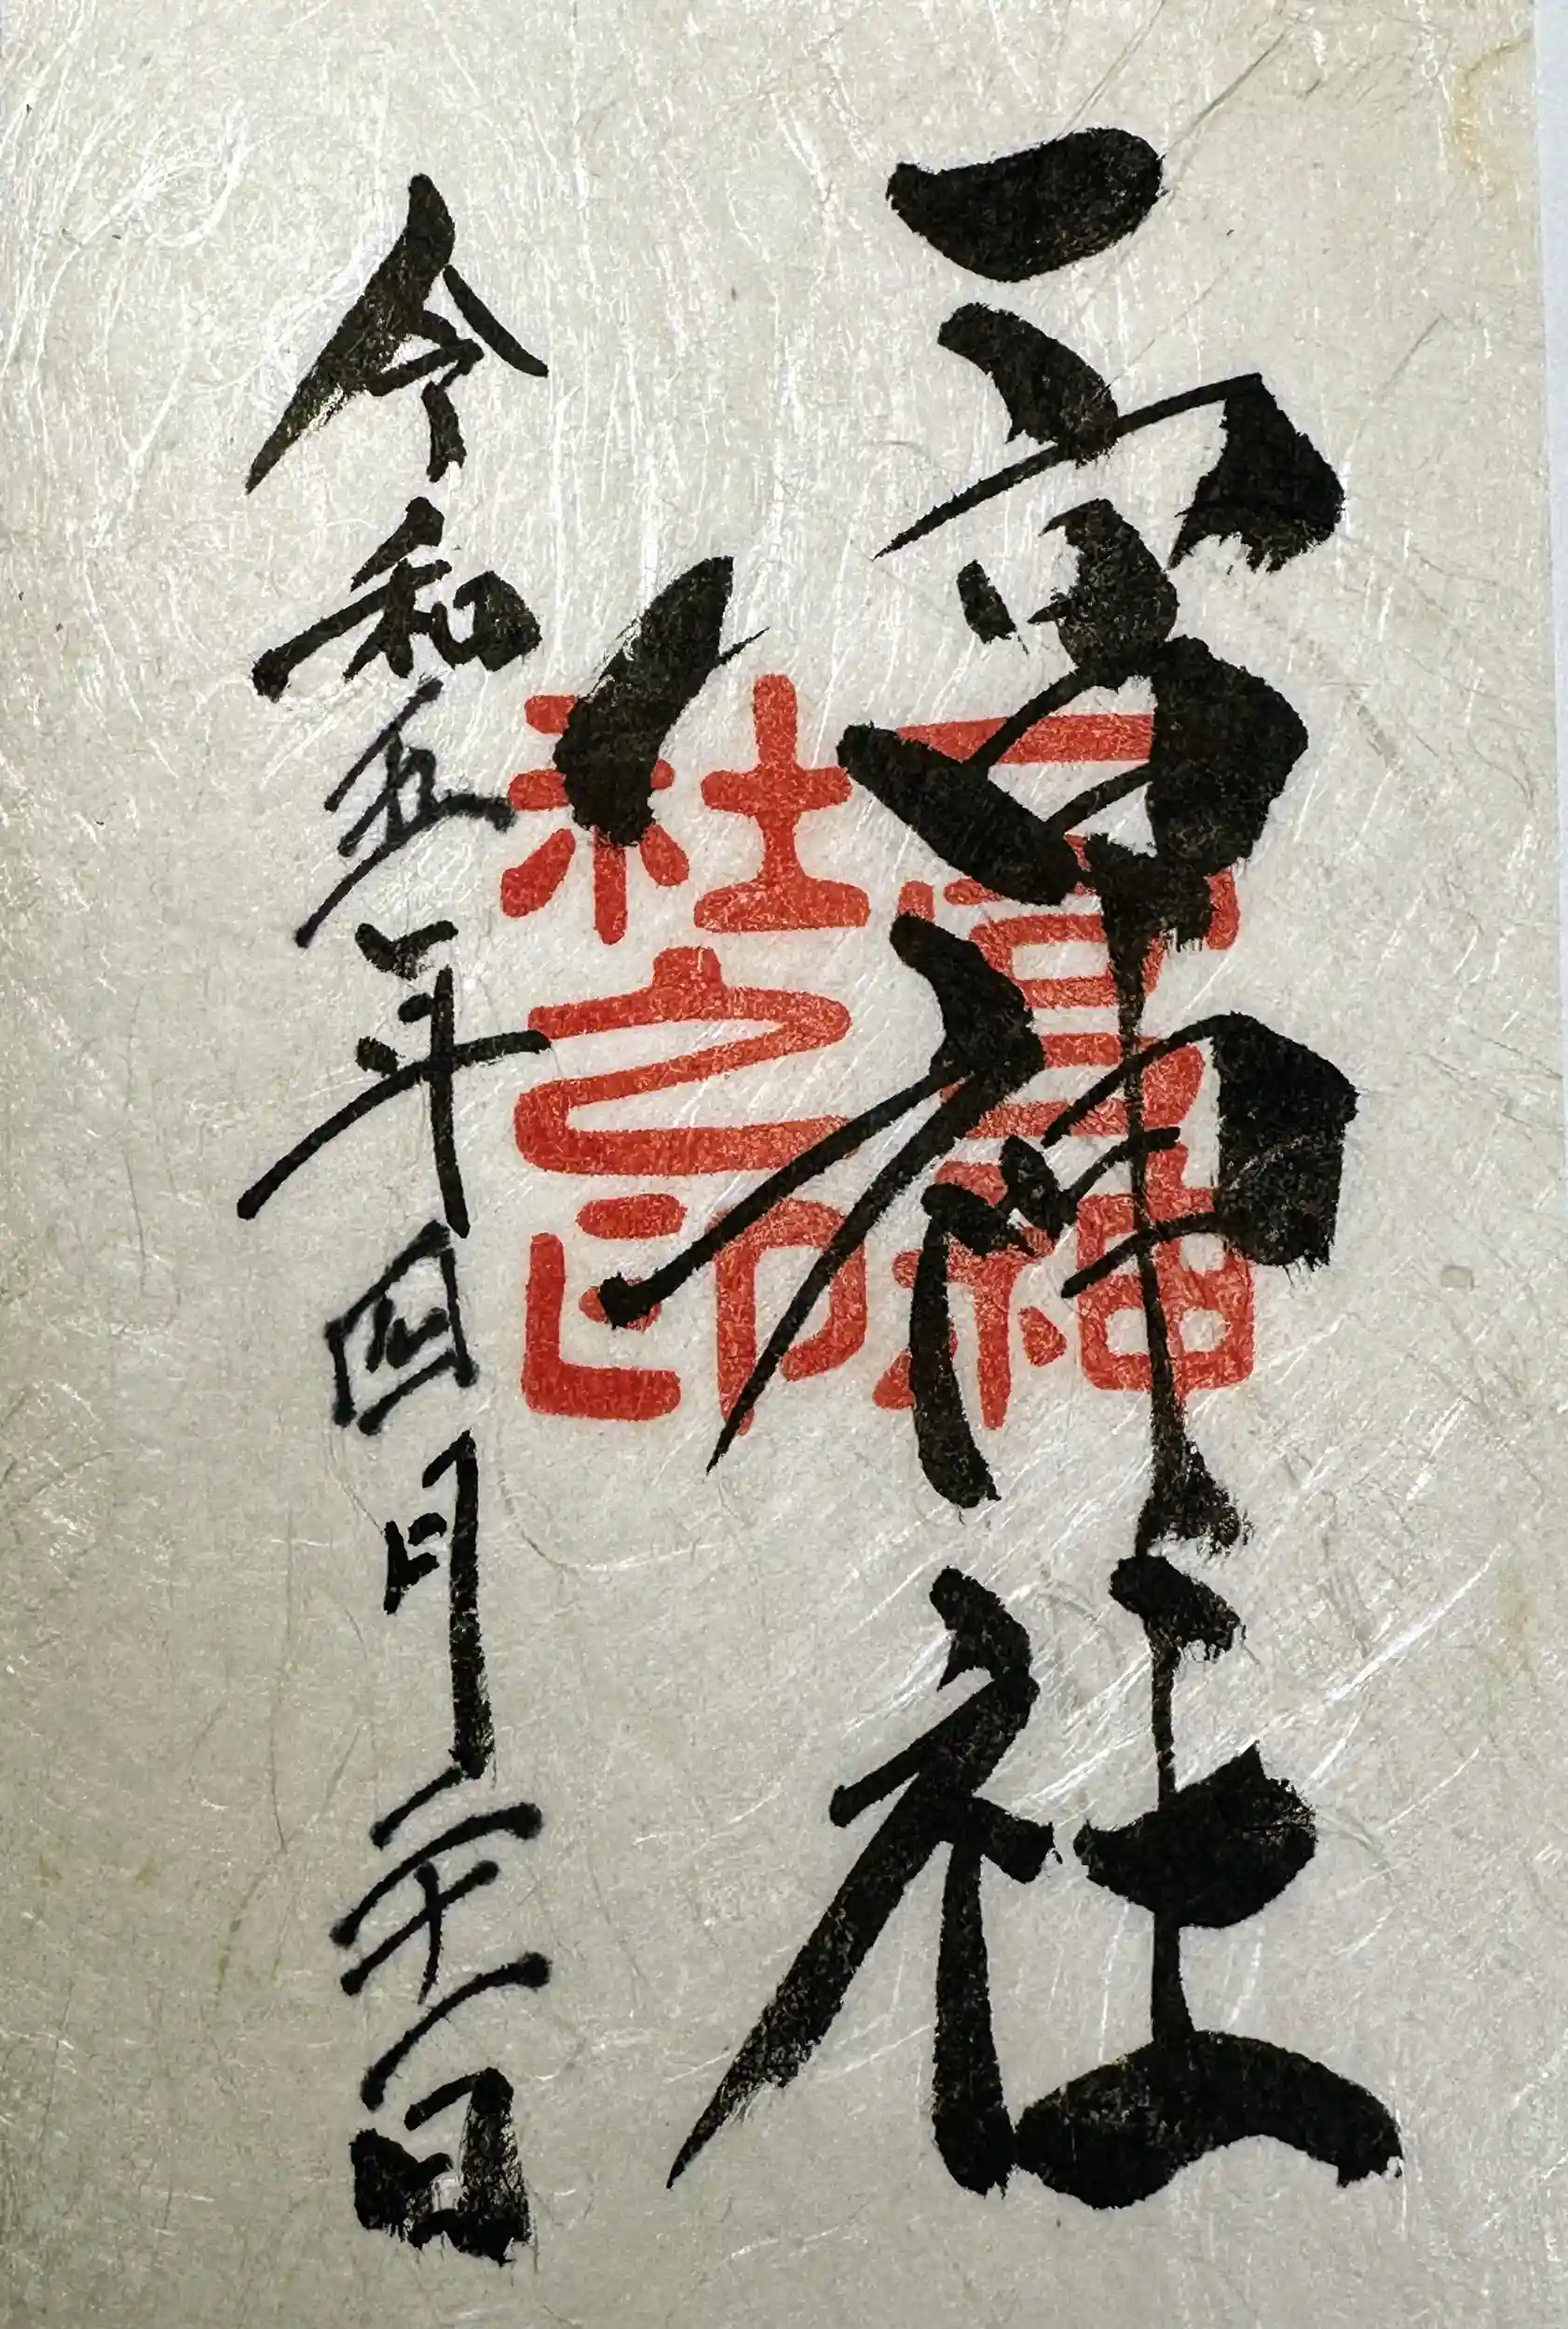 一宮神社
令和五年四月二十一日
一宮神
社之印